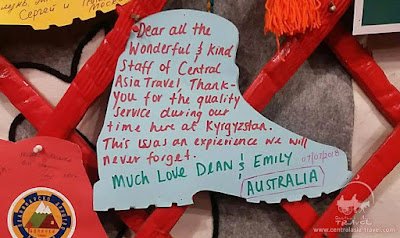 Сергей и
Dear all the
Wonderful & kind
Staff of Central
Asia Travel! Thank-
you for the quality
service during our
time here at Kyrgyzstan.
This was an experience we will
never forget.
Much Love Dean & Emily
07/07/2018
AUSTRALIA
TRAVEL
www.centralasia-travel.com